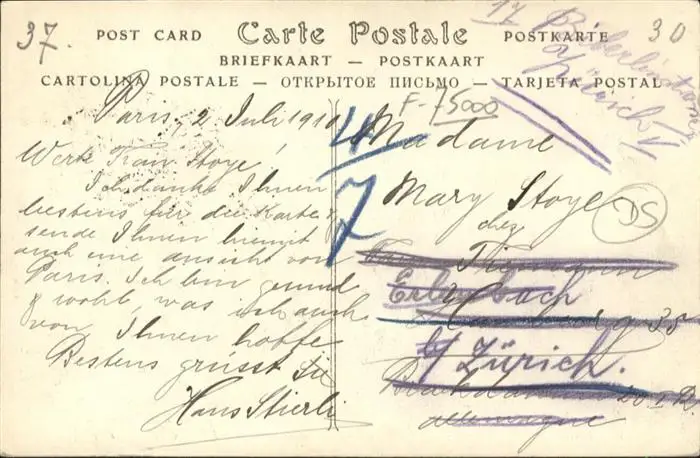 37.
30
POST CARD Carte Postale POSTKARTE
BRIEFKAART — POSTKAART
CARTOLINA POSTALE — ОТКРЫТОЕ ПИСЬМО — TARJETA POSTAL
F-75000
Paris, 2 Juli 191
Werte Frau Stoye!
Ich danke Ihnen
bestens für die Karte &
sende Ihnen hiemit
auch eine ansicht von
Paris. Ich bin gesund
& wohl, was ich auch
von Ihnen hoffe
Bestens grüsst Sie
Hans Stierli
4
7
Madame
Mary Stoye
chez
DS
Erlenbach
35
b/ Zürich.
allemagne
Zürich